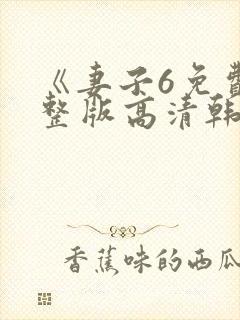 《妻子6免费
整版高清韩
香蕉味的西瓜